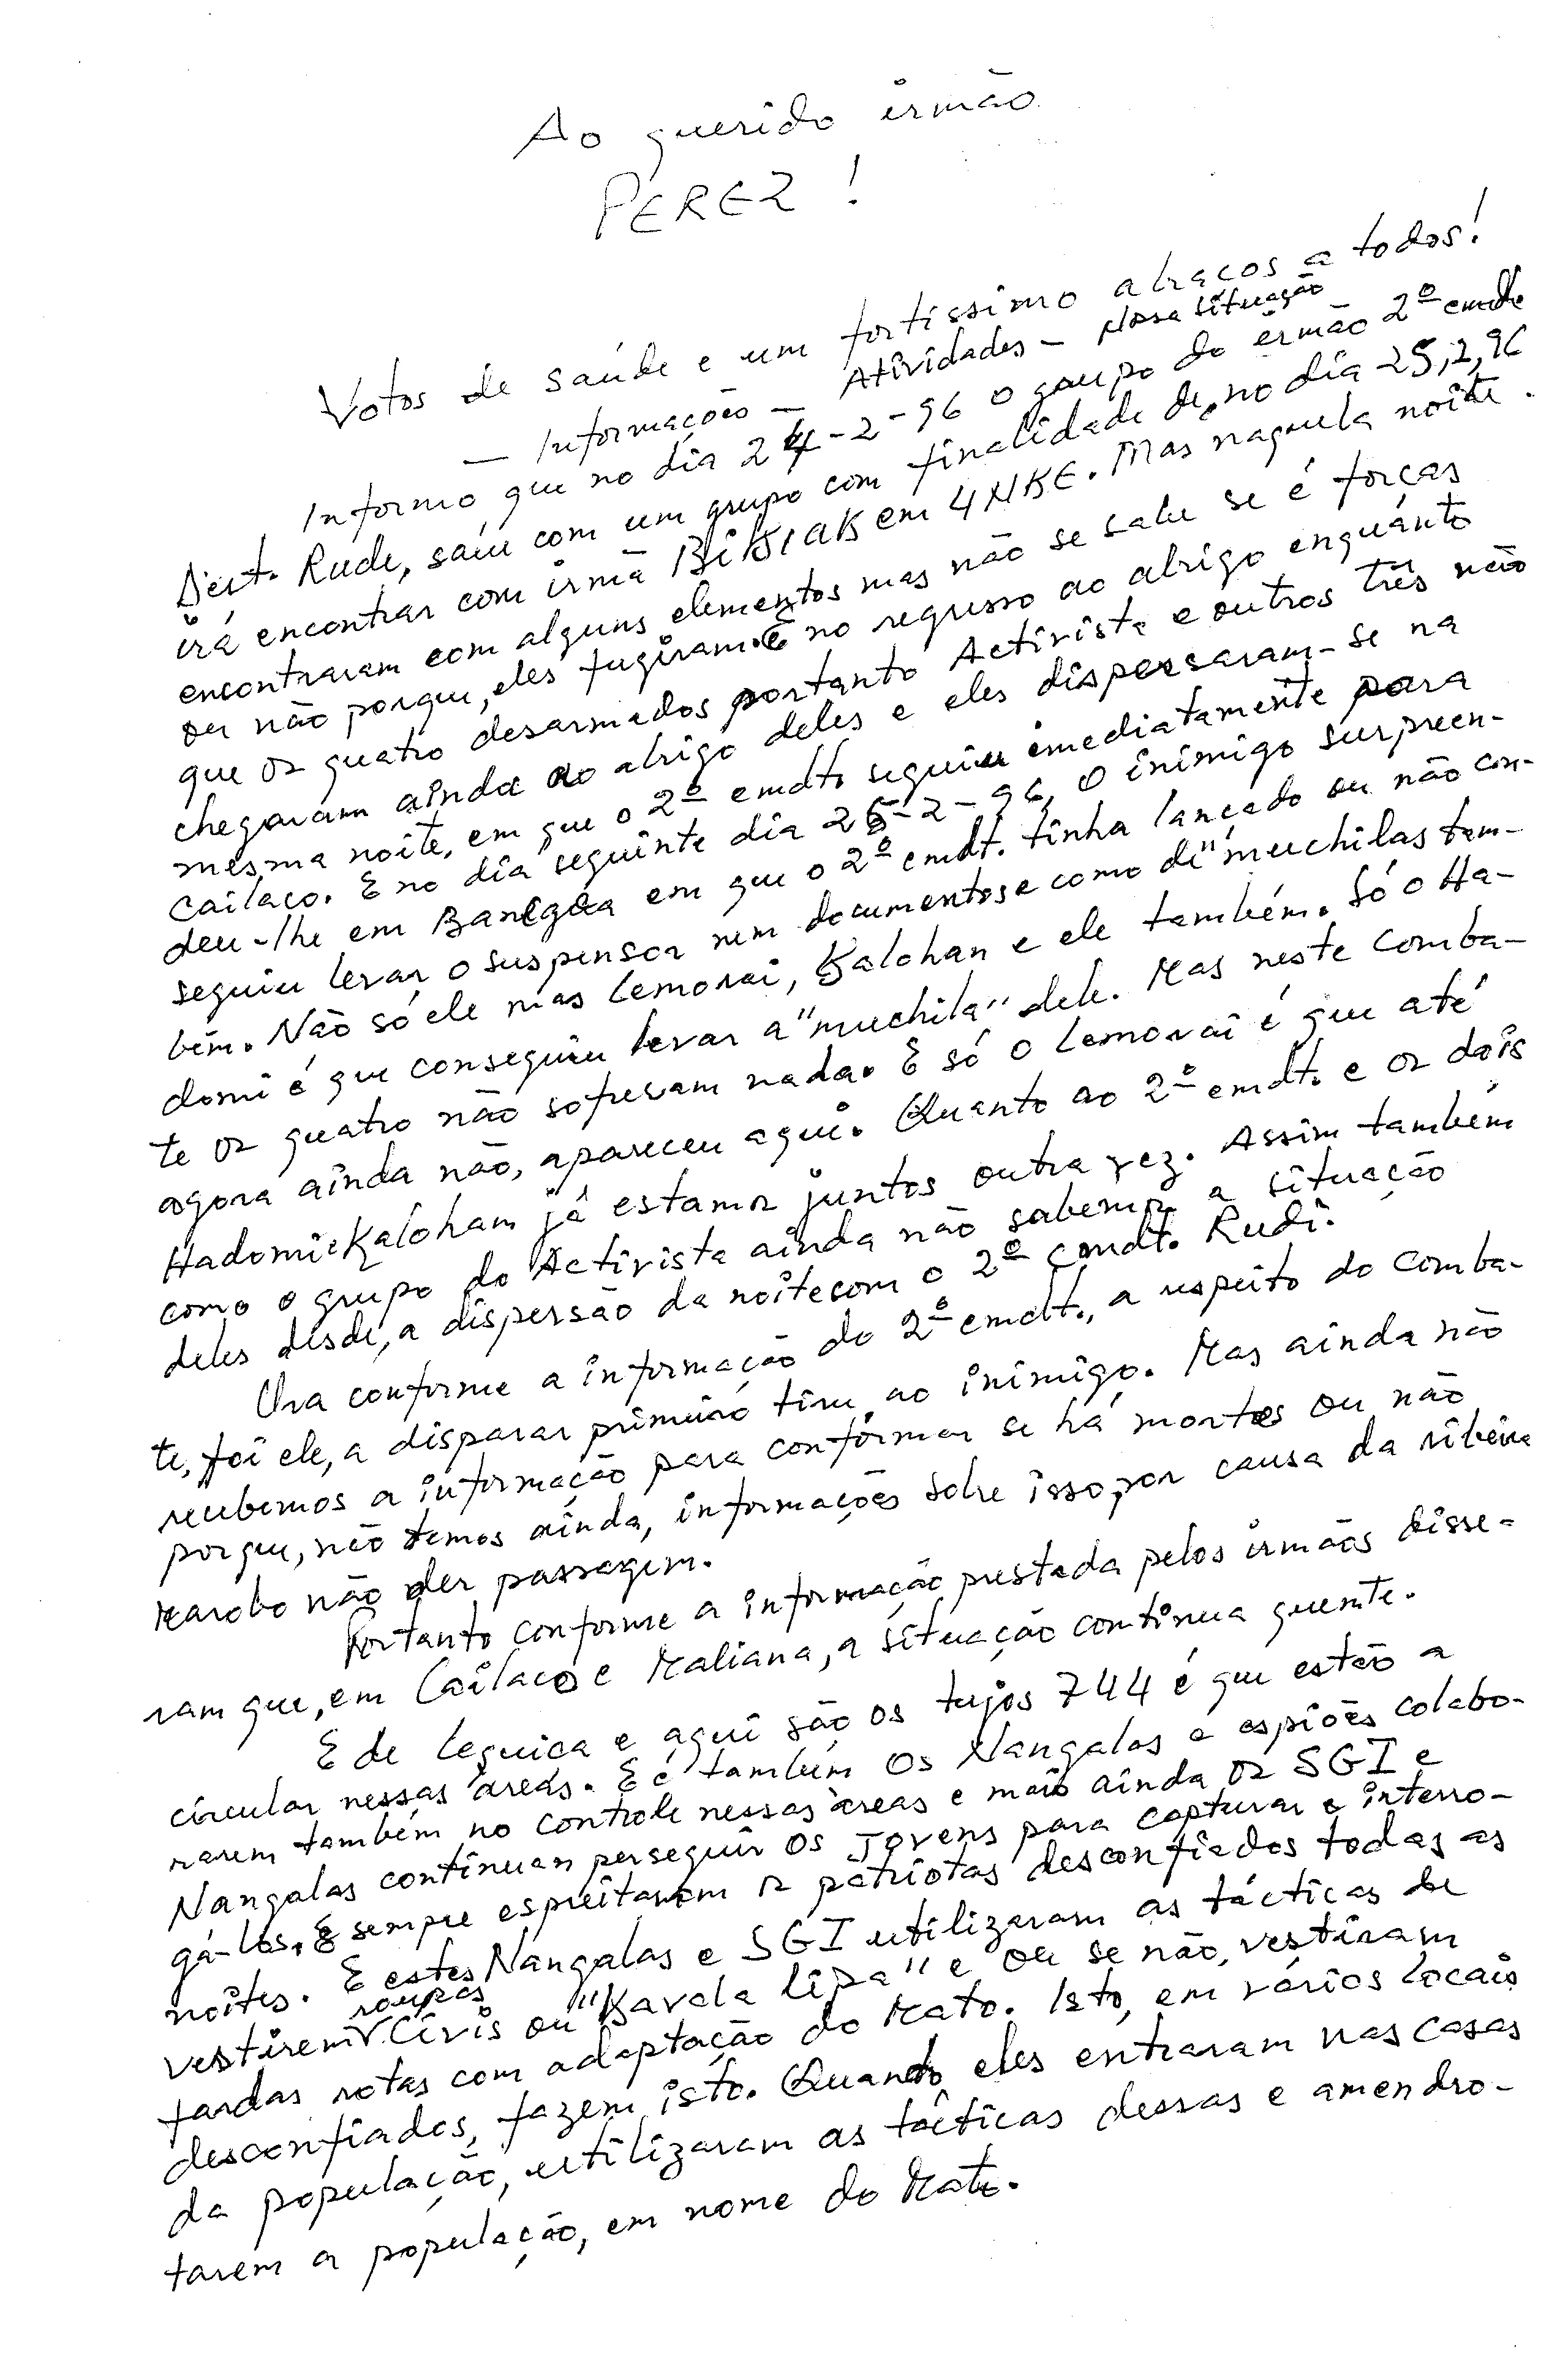 Ao querido irmão
PEREZ !
Votos de saúde e um fortissimo abraços a todos!
— Informações — Atividades — Nossa situação
Informo que no dia 24-2-96 o grupo do irmão 2º cmdte
Dest. Rude, saíu com um grupo com finalidade de, no dia 25,2,96
irá encontrar com irmã BiKIAK em 4 NKE. Mas naquela noite
encontraram com alguns elementos mas não se sabe se é forças
ou não porque, eles fugiram. E no regresso ao abrigo enquanto
que os quatro desarmados portanto Activista e outros três não
chegaram ainda ao abrigo deles e eles dispersaram-se na
mesma noite, em que o 2º cmdte seguiu imediatamente para
Cailaco. E no dia seguinte dia 25-2-96, o inimigo surpreen-
deu-lhe em em que o 2º cmdt. tinha lançado ou não con-
seguiu levar o suspensor nem documentos e como di "muchilas tam-
bém. Não só ele mas Lemorai, Kalohan e ele também. Só o Ha-
domi é que conseguiu levar a "muchila" dele. Mas neste comba-
te os quatro não sofreram nada. E só o Lemorai é que até
agora ainda não, apareceu aqui. Quanto ao 2º cmdt. e os dois
Hadomi e Kaloham já estamos juntos outra vez. Assim também
como o grupo do Activista ainda não sabemos a situação
deles desde, a dispersão da noite com o 2º cmdt. Rudi.
Ora conforme a informação do 2º cmdt., a respeito do comba-
te, foi ele, a disparar primeiro tiru, ao inimigo. Mas ainda não
recebemos a informação para conformar se há mortes ou não
porque, não temos ainda, informações sobre isso, por causa da ribeira
Marobo não der passagem.
Portanto conforme a informação prestada pelos irmãos disse-
ram que, em Cailaco e Maliana, a situação continua quente.
E de Leguica e aqui são os tujos 744 é que estão a
circular nessas áreas. E é também os Nangalas e espiões colabo-
rarem também no controle nessas áreas e mais ainda os SGI e
Nangalas continuan perseguir os Jovens para capturar e interro-
gá-los. E sempre espreitarem os patriotas desconfiados todas as
noites. E estes Nangalas e SGI utilizaram as tácticas de
vestirem roupas Civis ou "Kavala lipa" e ou se não, vestiram
fardas rotas com adaptação do Mato. Isto, em vários locais
desconfiados, fazem isto. Quando eles entraram nas casas
da população, utilizaram as tácticas dessas e amendro-
tarem a população, em nome do Mato.